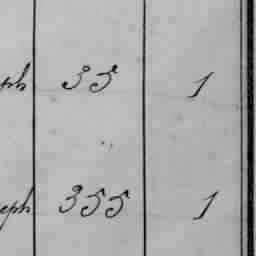 ph 35 1
eph 355 1